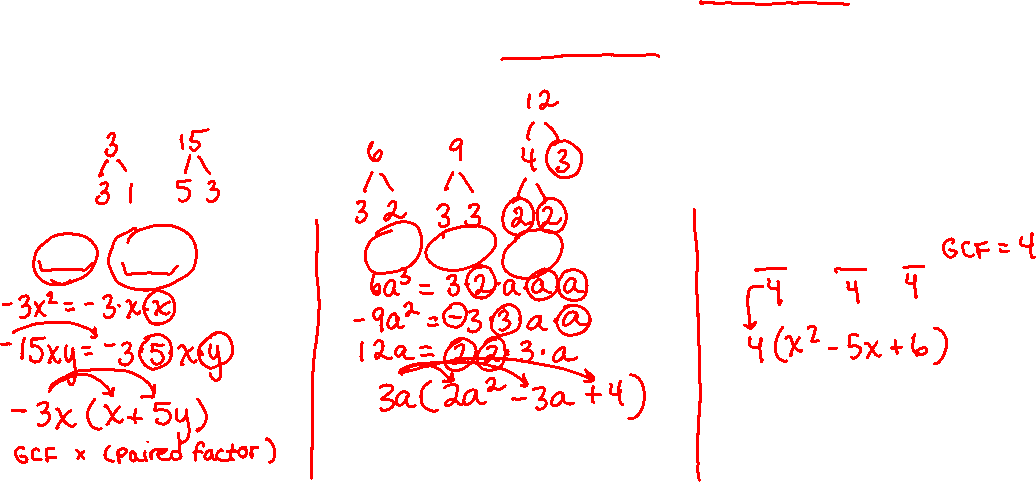 3 15
3 1 5 3
-3x² = -3·x·x
-15xy = -3 5 x·y
-3x (x + 5y)
GCF x (paired factor)
12
6 9 4 3
3 2 3 3 2 2
6a³ = 3·2·a·a·a
-9a² = -3·3·a·a
12a = 2·2·3·a
3a(2a² - 3a + 4)
GCF = 4
4 4 4
4(x² - 5x + 6)